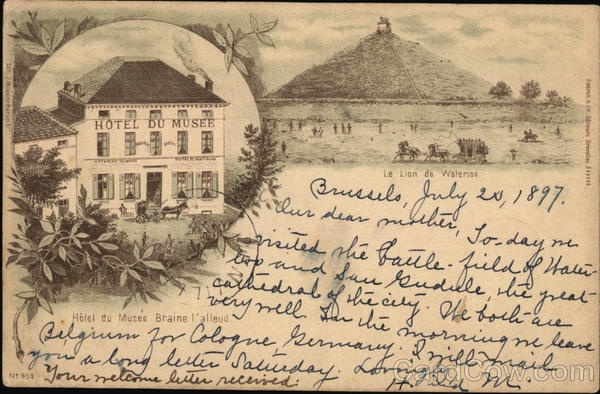 HÔTEL DU MUSÉE
Le Lion de Waterloo
Brussels, July 20, 1897.
Our dear mother, To-day we
visited the battle-field of Water-
loo and San Gudule the great
cathedral of the city. We both are
very well. In the morning we leave
Belgium for Cologne Germany. I will mail
you a long letter Saturday. Lovingly
Your welcome letter received.
Hôtel du Musée Braine l'alleud
No 952
CardCow.com